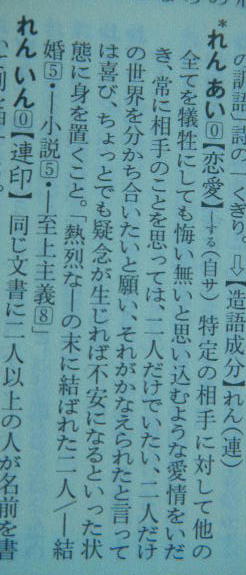 の訓語」詩の一くぎり。⇩【造語成分】れん(連)
*れん あい⓪【恋愛】―する(自サ) 特定の相手に対して他の
全てを犠牲にしても悔い無いと思い込むような愛情をいだ
き、常に相手のことを思っては、二人だけでいたい、二人だけ
の世界を分かち合いたいと願い、それがかなえられたと言って
は喜び、ちょっとでも疑念が生じれば不安になるといった状
態に身を置くこと。「熱烈な―の末に結ばれた二人/―結
婚⑤・―小説⑤・―至上主義⑧」
れん いん⓪【連印】 同じ文書に二人以上の人が名前を書